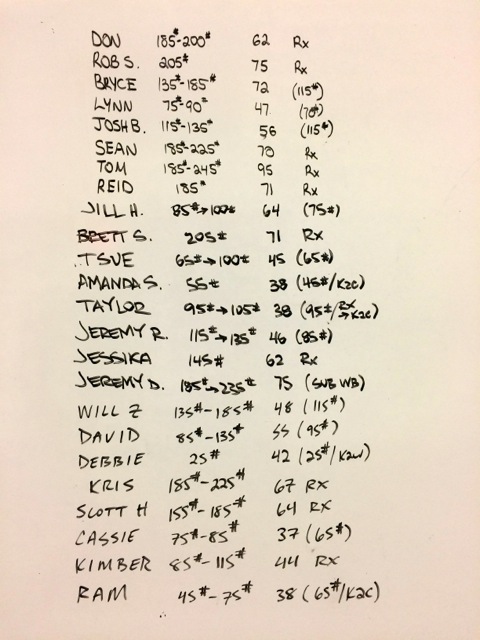 DON 185#-200# 62 Rx
ROB S. 205# 75 Rx
BRYCE 135#-185# 72 (115#)
LYNN 75#-90# 47 (70#)
JOSH B. 115#-135# 56 (115#)
SEAN 185#-225# 70 Rx
TOM 185#-245# 95 Rx
REID 185# 71 Rx
JILL H. 85#→100# 64 (75#)
BRETT S. 205# 71 RX
TSUE 65#→100# 45 (65#)
AMANDA S. 55# 38 (45#/K2C)
TAYLOR 95#→105# 38 (95#/RX→K2C)
JEREMY R. 115#→135# 46 (85#)
JESSIKA 145# 62 RX
JEREMY D. 185#→235# 75 (SUB WB)
WILL Z 135#-185# 48 (115#)
DAVID 85#-135# 55 (95#)
DEBBIE 25# 42 (25#/K2W)
KRIS 185#-225# 67 RX
SCOTT H 155#-185# 64 RX
CASSIE 75#-85# 37 (65#)
KIMBER 85#-115# 44 RX
RAM 45#-75# 38 (65#/K2C)